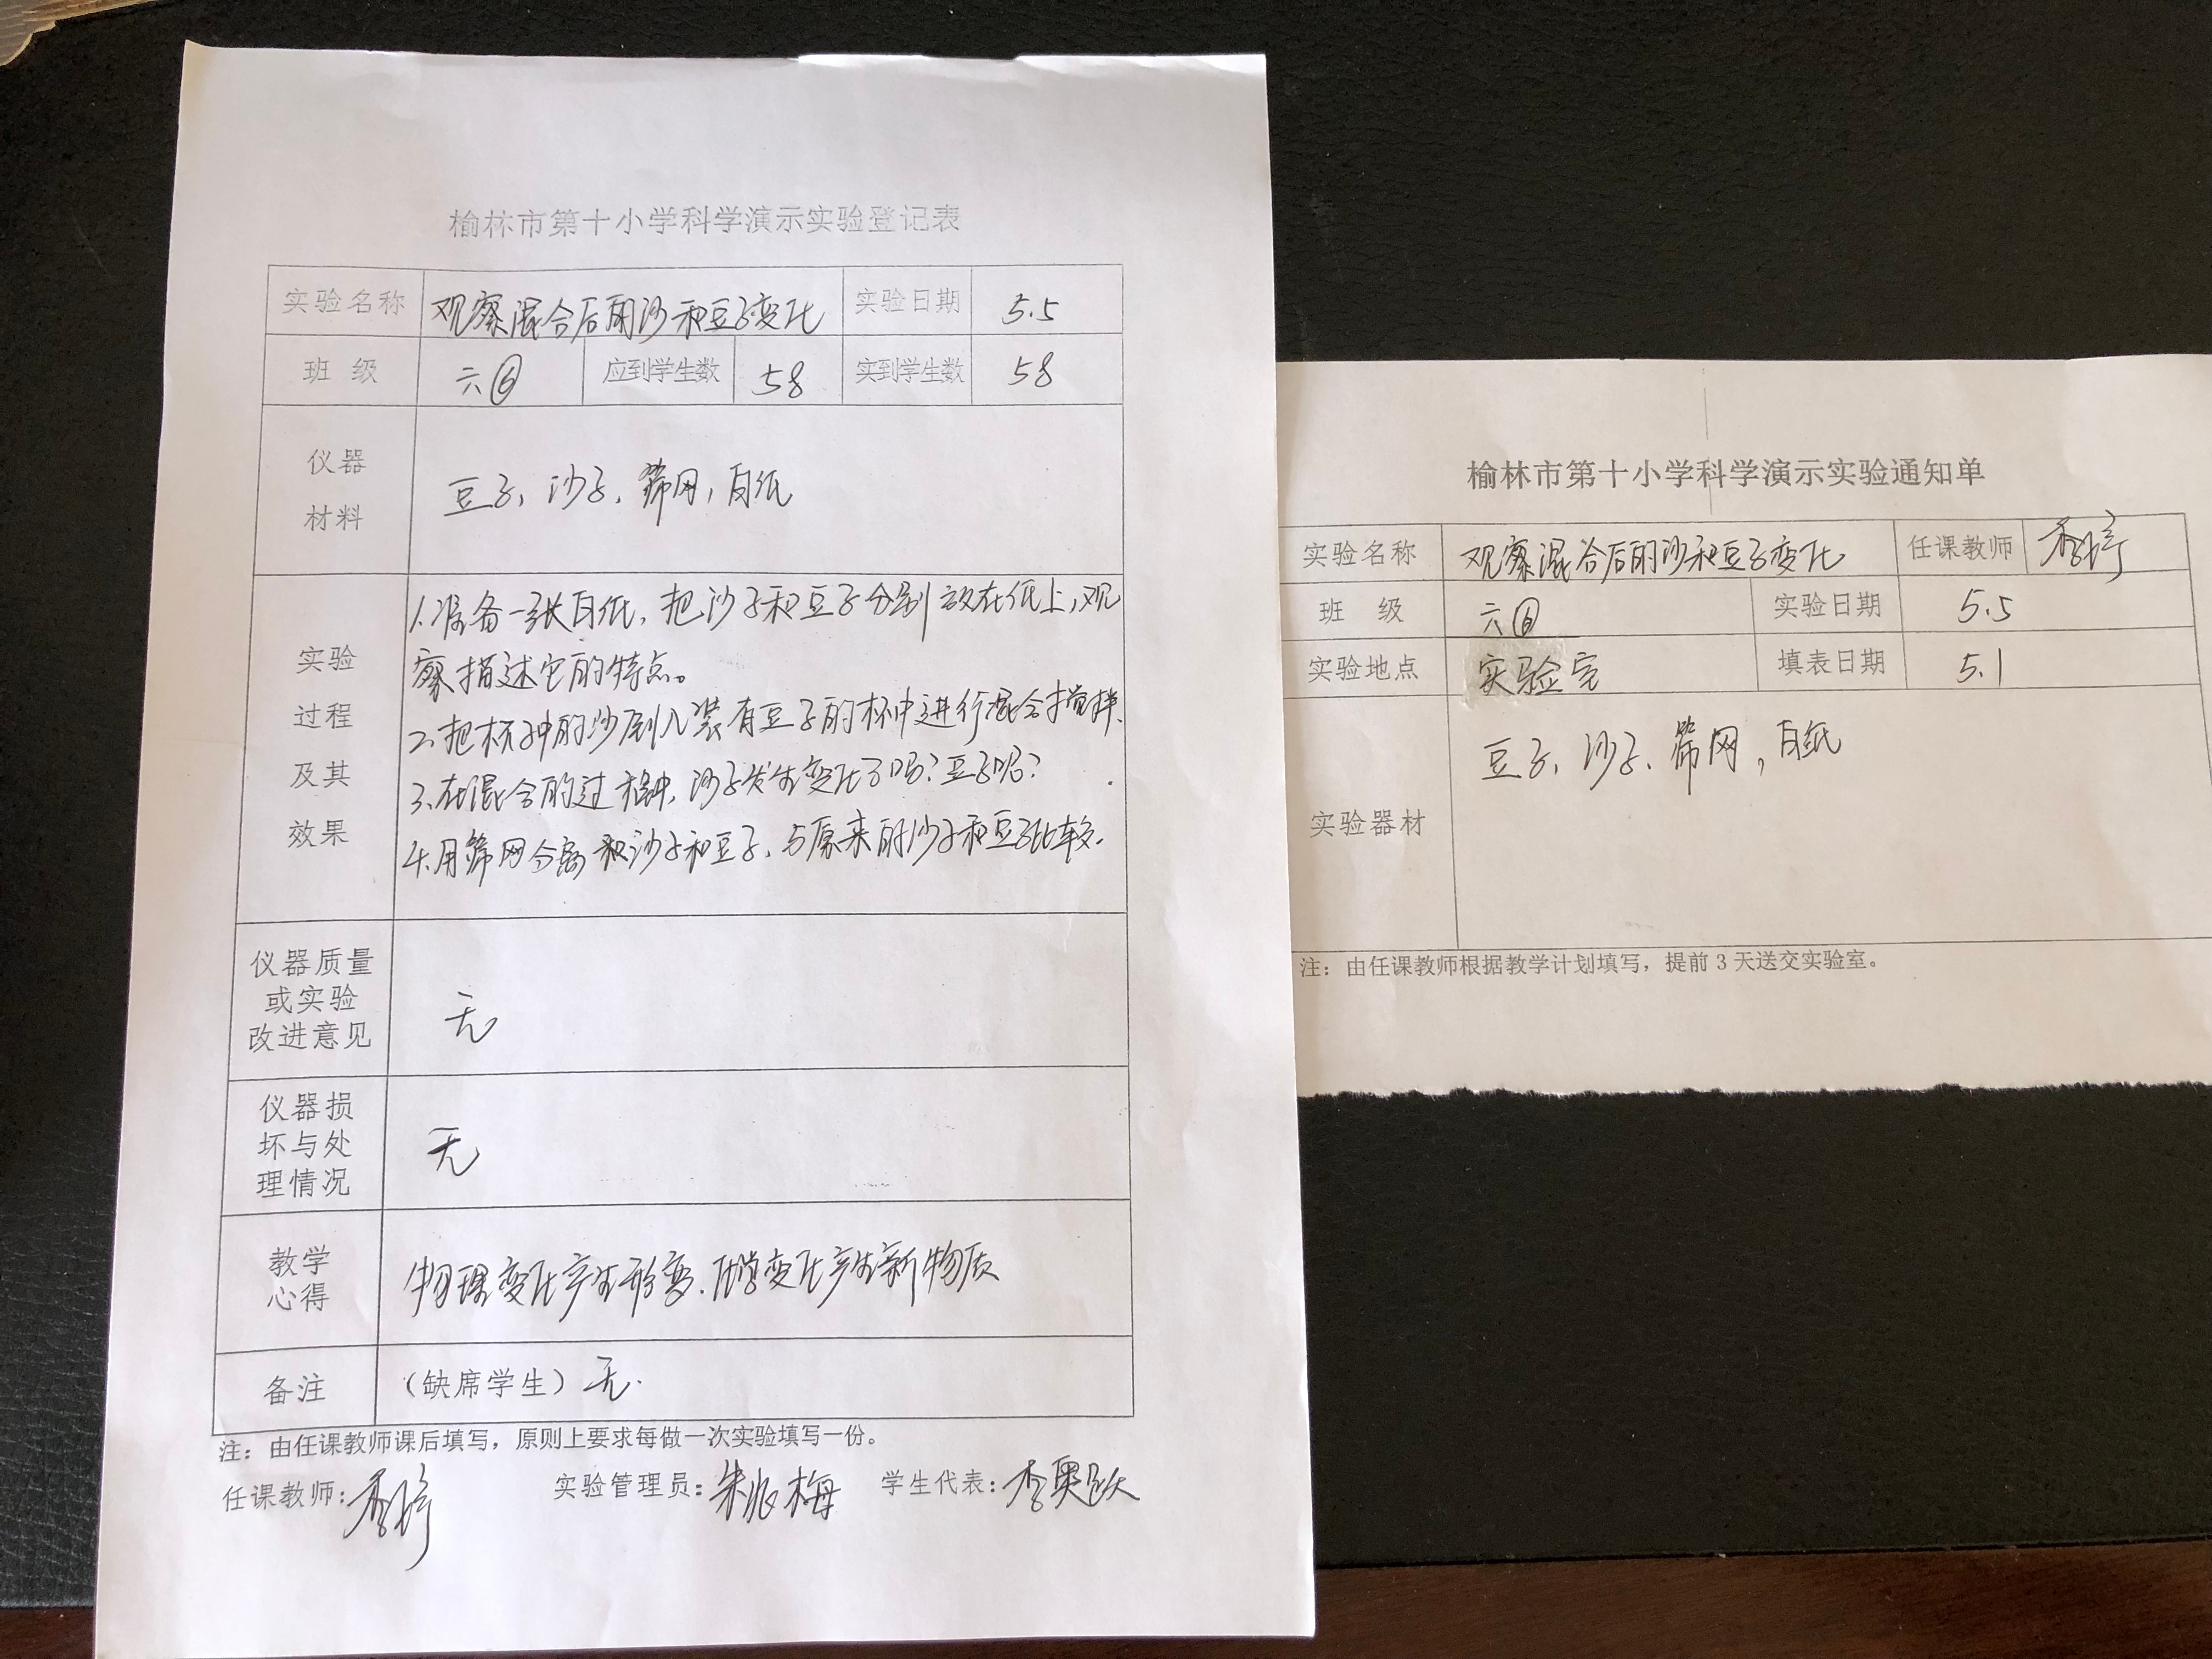 榆林市第十小学科学演示实验登记表
实验名称 观察混合后的沙和豆子变化 实验日期 5.5
班 级 六⑥ 应到学生数 58 实到学生数 58
仪器
材料
豆子、沙子、筛网，白纸
实验
过程
及其
效果
1.准备一张白纸，把沙子和豆子分别放在纸上，观
察描述它的特点。
2、把杯子中的沙倒入装有豆子的杯中进行混合搅拌、
3、在混合的过程中，沙子发生变化了吗？豆子呢？
4.用筛网分离 沙子和豆子、与原来的沙子和豆子比较.
仪器质量
或实验
改进意见
无
仪器损
坏与处
理情况
无
教学
心得
物理变化产生形变.化学变化产生新物质
备注 （缺席学生）无.
注：由任课教师课后填写，原则上要求每做一次实验填写一份。
任课教师：李 实验管理员：朱 梅 学生代表：李奥跃
榆林市第十小学科学演示实验通知单
实验名称 观察混合后的沙和豆子变化 任课教师 李
班 级 六⑥ 实验日期 5.5
实验地点 实验室 填表日期 5.1
实验器材
豆子、沙子、筛网，白纸
注：由任课教师根据教学计划填写，提前 3 天送交实验室。